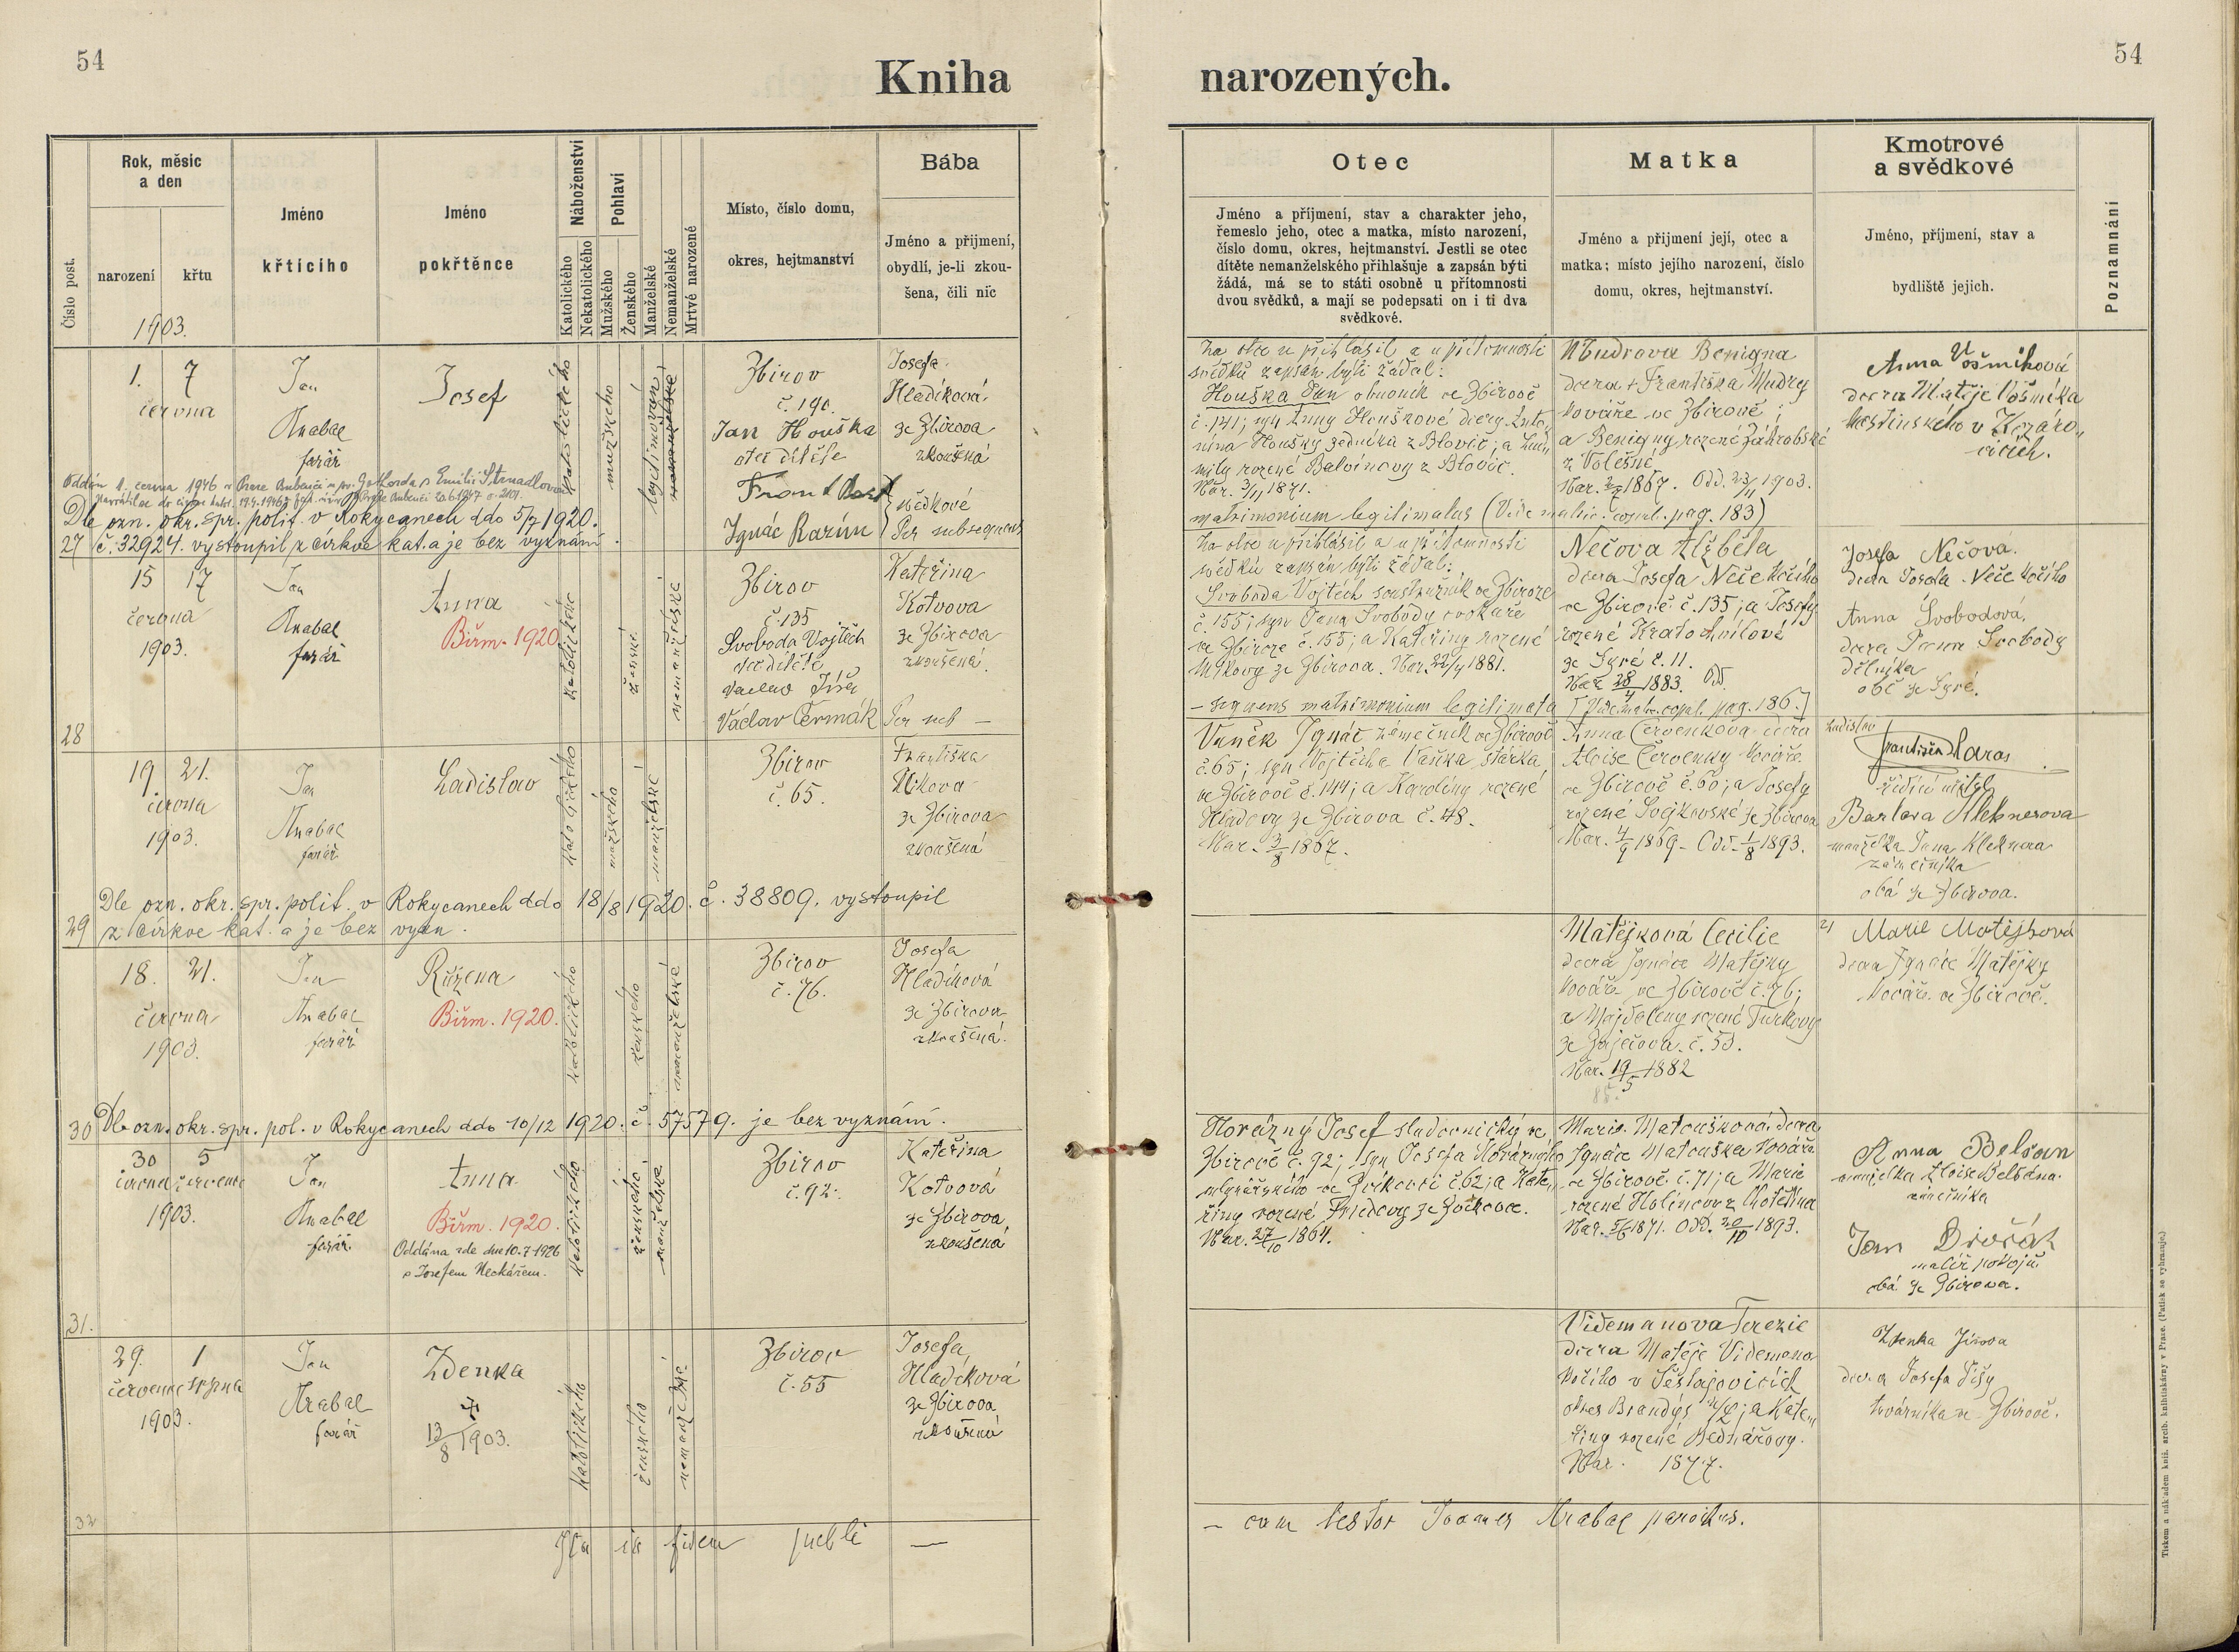 54
Kniha
narozených.
54
Číslo post.
Rok, měsíc
a den
narození
křtu
1903.
Jméno
křtícího
Jméno
pokřtěnce
Náboženství
Katolického
Nekatolického
Pohlaví
Mužského
Ženského
Manželské
Nemanželské
Mrtvě narozené
Místo, číslo domu,
okres, hejtmanství
Bába
Jméno a přijmení,
obydlí, je-li zkou-
šena, čili nic
Otec
Jméno a příjmení, stav a charakter jeho,
řemeslo jeho, otec a matka, místo narození,
číslo domu, okres, hejtmanství. Jestli se otec
dítěte nemanželského přihlašuje a zapsán býti
žádá, má se to státi osobně u přítomnosti
dvou svědků, a mají se podepsati on i ti dva
svědkové.
Matka
Jméno a přijmení její, otec a
matka; místo jejího narození, číslo
domu, okres, hejtmanství.
Kmotrové
a svědkové
Jméno, příjmení, stav a
bydliště jejich.
Poznamnání
1. 7
června
Jan
Hrabal
farář
Josef
katolického
mužského
legitimován
nemanželské
Zbirov
č. 190.
Jan Houška
otec dítěte
Ignác Barým
svědkové
Josefa
Hladíková
ze Zbirova
zkoušená
Per subsequens
Oddán 1. června 1946 v Praze Bubenči
Dle ozn. okr. spr. polit. v Rokycanech ddo 5/7 1920.
27 č. 32924. vystoupil z církve kat. a je bez vyznání.
za otce se přihlásil a u přítomnosti
svědků zapsán býti žádal:
Houška Jan obuvník ve Zbirově
č. 141; syn Anny Houškové dcery Anto-
nína Houšky sedníka z Blovic; a Lud-
mily rozené Balvínovy z Blovic.
Nar. 3/11 1871.
matrimonium legitimatus (Vide matric. copul. pag. 183)
Mudrova Benigna
dcera † Františka Mudry
kováře ve Zbirově;
a Benigny rozené Záhrobské
z Volešné
1867. Odd. 23/11 1903.
Anna Vošmíková
dcera Matěje Vošmíka
hostinského v Kozáro-
vicích.
15 17
června
1903.
Jan
Hrabal
farář
Anna
Biřm. 1920
katolické
ženské
nemanželské
Zbirov
č. 135
Svoboda Vojtěch
otec dítěte
Václav Jíša
Václav Čermák
Kateřina
Kotvova
ze Zbirova
zkoušená.
Per sub —
28
za otce se přihlásil a u přítomnosti
svědků zapsán býti žádal:
Svoboda Vojtěch soustružník ve Zbirově
č. 155; syn Jana Svobody cvokaře
ve Zbirově č. 155; a Kateřiny rozené
Míkovy ze Zbirova. Nar. 22/4 1881.
— sequens matrimonium legitimata [Vide matr. copul. pag. 186.]
Nečova Alžběta
dcera Josefa Neče kočího
ve Zbirově č. 135; a Josefy
rozené Kratochvílové
ze Syré č. 11.
Nar. 28/4 1883. Odd.
Josefa Nečová.
dcera Josefa Neče kočího
Anna Svobodová,
dcera Jana Svobody
dělníka
obě ze Syré.
19 21.
června
1903.
Jan
Hrabal
farář
Ladislav
katolického
mužského
manželské
Zbirov
č. 65.
Františka
Míkova
ze Zbirova
zkoušená
Dle ozn. okr. spr. polit. v Rokycanech ddo 18/8 1920. č. 38809. vystoupil
29 z církve kat. a je bez vyzn.
Vaněk Ignác zámečník ve Zbirově
č. 65; syn Vojtěcha Vaňka stárka
ve Zbirově č. 144; a Karolíny rozené
Hladovy ze Zbirova č. 48.
Nar. 3/8 1867.
Anna Červenkova dcera
Aloise Červenky kováře
ve Zbirově č. 60; a Josefy
rozené Svejkovské ze Zbirova
Nar. 4/9 1869. Odd. 1/8 1893.
Ladislav
František Maras
řídící učitel
Barbora Kleknerova
manželka Jana Kleknera
zámečníka
oba ze Zbirova.
18. 21.
června
1903.
Jan
Hrabal
farář
Růžena
Biřm. 1920.
katolického
ženského
nemanželské
Zbirov
č. 76.
Josefa
Hladíková
ze Zbirova
zkoušená.
30 Dle ozn. okr. spr. pol. v Rokycanech ddo 10/12 1920. č. 57579. je bez vyznání.
Matějková Cecilie
dcera Ignáce Matějky
kováře ve Zbirově č. 76;
a Majdaleny rozené Turkovy
ze Zaječova č. 53.
Nar. 19/5 1882
Marie Matějková
dcera Ignáce Matějky
kováře ve Zbirově.
30 5
června července
1903.
Jan
Hrabal
farář
Anna
Biřm. 1920.
Oddána zde dne 10.7.1926
s Josefem Neckářem.
katolického
ženského
manželské
Zbirov
č. 92.
Kateřina
Kotvová
ze Zbirova,
zkoušená
31.
Horázný Josef sladovnický ve
Zbirově č. 92; syn Josefa Horázného
mlynářského ve Zvíkovci č. 62; a Kate-
řiny rozené Friedovy ze Zvíkovce.
Nar. 27/10 1864.
Marie Matoušková dcera
Ignáce Matouška kováře
ve Zbirově č. 71; a Marie
rozené Holincov z Chotětína
Nar. 5/6 1871. Odd. 20/10 1893.
Anna Belšan
manželka Aloise Belšána
zámečníka
Jan Dvořák
malíř pokojů
oba ze Zbirova.
29. 1
července srpna
1903.
Jan
Hrabal
farář
Zdenka
✝
13/8 1903.
katolického
ženského
nemanželské
Zbirov
č. 55
Josefa
Hladíková
ze Zbirova
zkoušená
32
Videmanova Terezie
dcera Matěje Videmana
kočího v Šestajovicích
okres Brandýs n/L; a Kate-
řiny rozené Bednářovy.
Nar. 1877.
Zdenka Jíšova
dcera Josefa Jíšy
továrníka ve Zbirově.
Ita in fidem publi —
— cam testor Joannes Hrabal parochus.
Tiskem a nákladem kníž. arcib. knihtiskárny v Praze. (Patisk se vyhrazuje.)